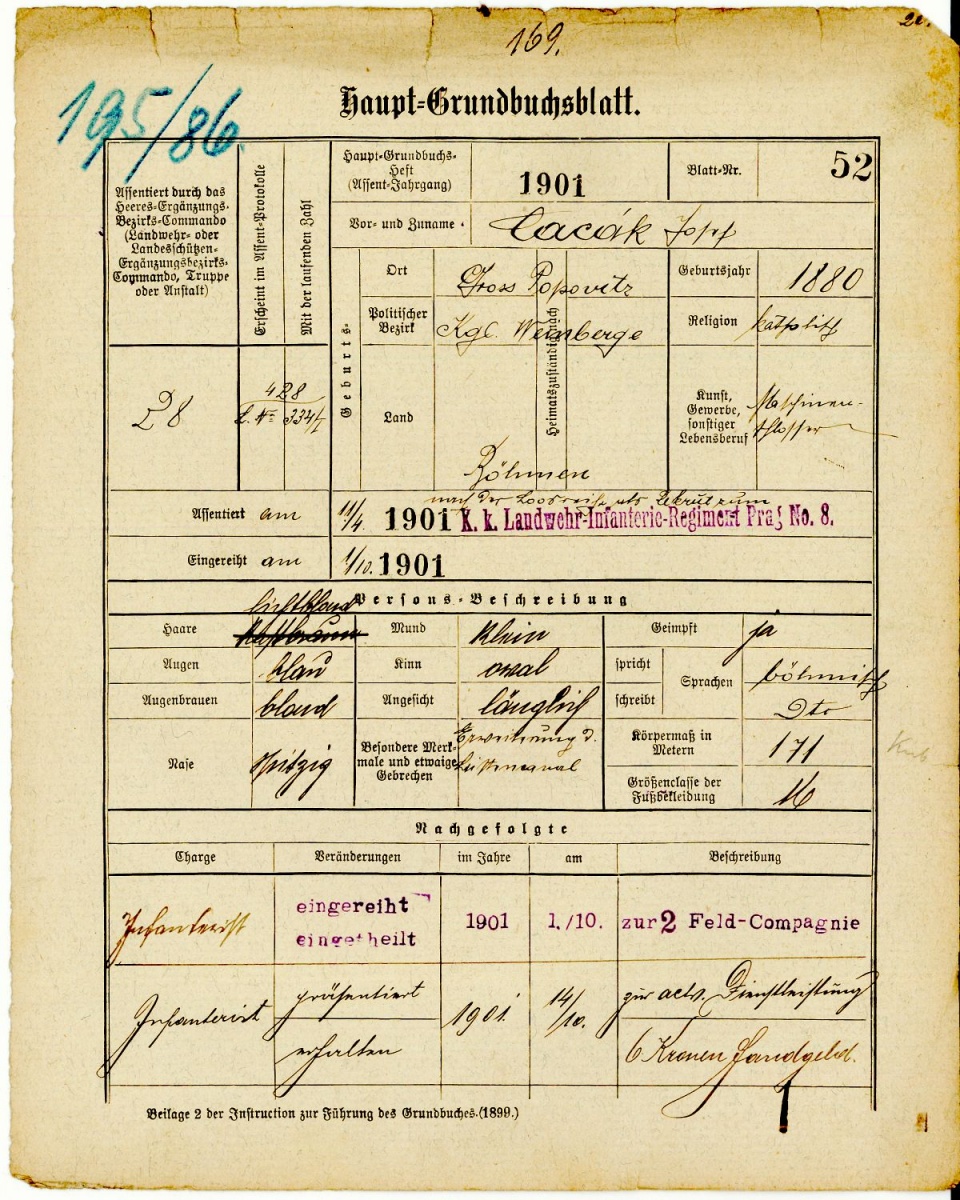 169.
195/86.
Haupt-Grundbuchsblatt.
Assentiert durch das
Heeres-Ergänzungs-
Bezirks-Commando
(Landwehr- oder
Landesschützen-
Ergänzungsbezirks-
Commando, Truppe
oder Anstalt)
Erscheint im Assent-Protokolle
Mit der laufenden Zahl
Haupt-Grundbuchs-
Heft
(Assent-Jahrgang)
1901
Blatt-Nr.
52
Vor- und Zuname
Cacák Josef
Geburts-
Ort
Gross Popovitz
Geburtsjahr
1880
Politischer
Bezirk
Kgl. Weinberge
Heimatszuständig nach
Religion
katholisch
28
428
334/I
Land
Böhmen
Kunst,
Gewerbe,
sonstiger
Lebensberuf
Maschinen-
schlosser
Assentiert am
11/4. 1901
nach der Losreihe als Rekrut zum
K. k. Landwehr-Infanterie-Regiment Prag No. 8.
Eingereiht am
1/10. 1901
Persons-Beschreibung
Haare
lichtblond
Mund
klein
Geimpft
ja
Augen
blau
Kinn
oval
spricht
Sprachen
böhmisch
Augenbrauen
blond
Angesicht
länglich
schreibt
Dto
Nase
spitzig
Besondere Merk-
male und etwaige
Gebrechen
Erweiterung d.
Leistencanal
Körpermaß in
Metern
171
Größenclasse der
Fußbekleidung
16
Nachgefolgte
Charge
Veränderungen
im Jahre
am
Beschreibung
Infanterist
eingereiht
eingetheilt
1901
1./10.
zur 2 Feld-Compagnie
Infanterist
präsentiert
1901
14/10.
zur actv. Dienstleistung
erhalten
6 Kronen Handgeld.
Beilage 2 der Instruction zur Führung des Grundbuches.(1899.)